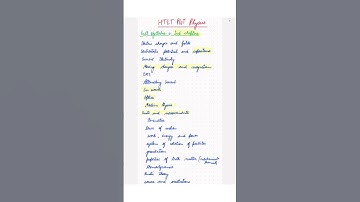 HTET PGT Physics
Full syllabus & Sub chapters
Electric charges and fields
Electrostatic potential and capacitance
Current Electricity
Moving charges and magnetism
EMI
Alternating current
Em waves
Optics
Modern Physics
Units and measurements
Kinematics
laws of motion
work, energy and power
system of
of particles
gravitation
properties of bulk matter
thermodynamics
kinetic theory
waves and oscillations